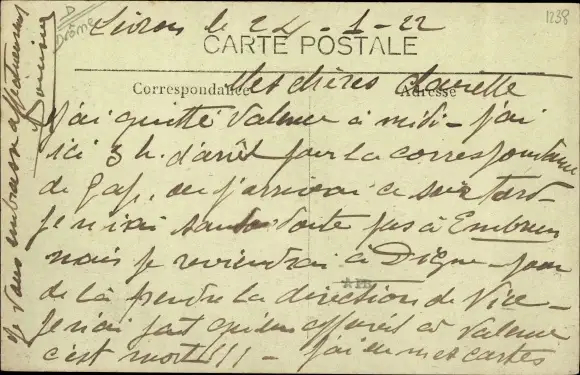 Livron le 24-1-22
1238
D
Drôme
CARTE POSTALE
Correspondance
Adresse
Mes chères
J'ai quitté Valence à midi - j'ai
ici 3 h. d'arrêt pour la correspondance
de Gap, où j'arriverai ce soir tard -
Je n'irai sans doute pas à Embrun
mais je reviendrai à Digne - pour
de là prendre la direction de Nice -
Je n'ai fait qu'un appareil à Valence
c'est mort !!! - j'ai eu mes cartes
Je vous embrasse affectueusement